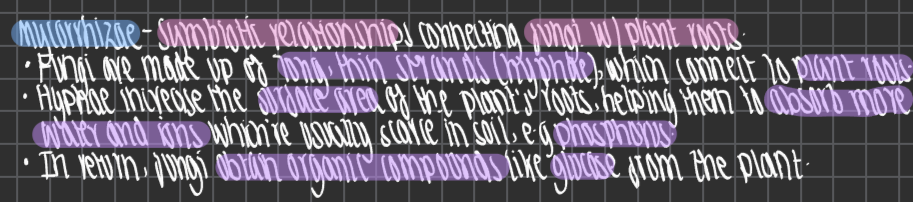 Mycorrhizae - Symbiotic relationships connecting fungi w/ plant roots.
• Fungi are made up of long, thin strands (hyphae), which connect to plant roots.
• Hyphae increase the surface area of the plant's roots, helping them to absorb more
water and ions which're usually scarce in soil, e.g phosphorus.
• In return, fungi obtain organic compounds like glucose from the plant.